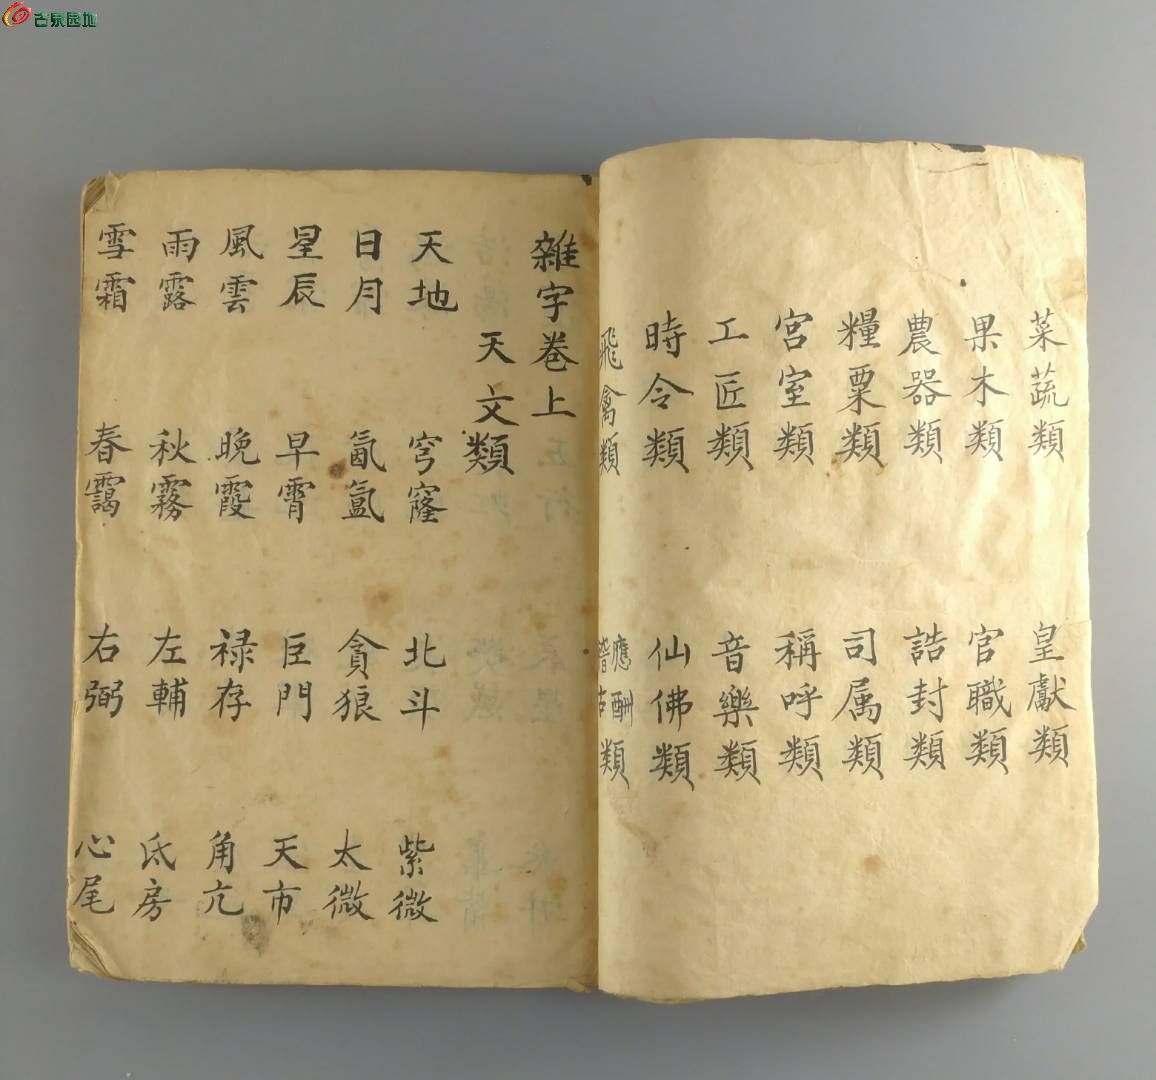 古泉园地
菜蔬類 皇獻類
果木類 官職類
農器類 誥封類
糧粟類 司属類
宮室類 稱呼類
工匠類 音樂類
時令類 仙佛類
飛禽類 應酬 類
雜字卷上
天文類
天地 穹窿 北斗 紫微
日月 氤氳 貪狼 太微
星辰 早霄 巨門 天市
風雲 晚霞 禄存 角亢
雨露 秋霧 左輔 氐房
雪霜 春靄 右弼 心尾